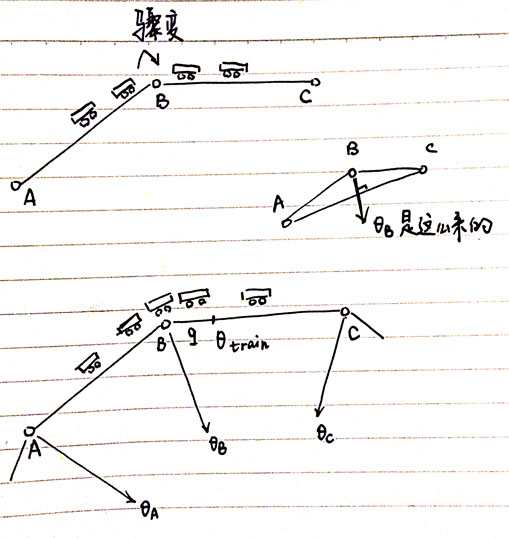 骤变
B
C
A
B
C
A
θB 是这么来的
B
9
θtrain
C
A
θB
θC
θA